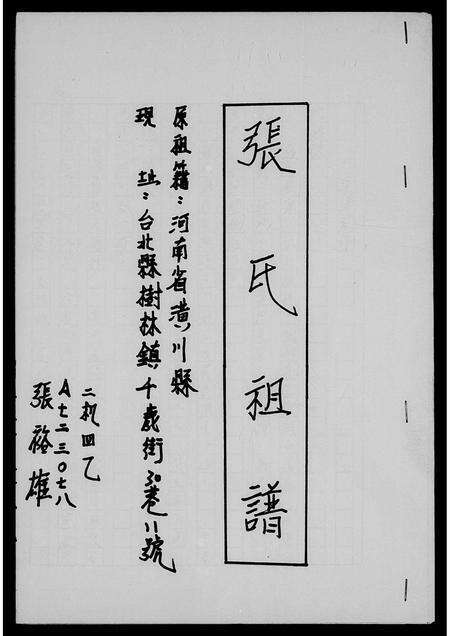 張氏祖譜
原祖籍：河南省潢川縣
現址：台北縣樹林鎮千歲街30巷11號
二机四乙
A七二三0七八
張裕雄